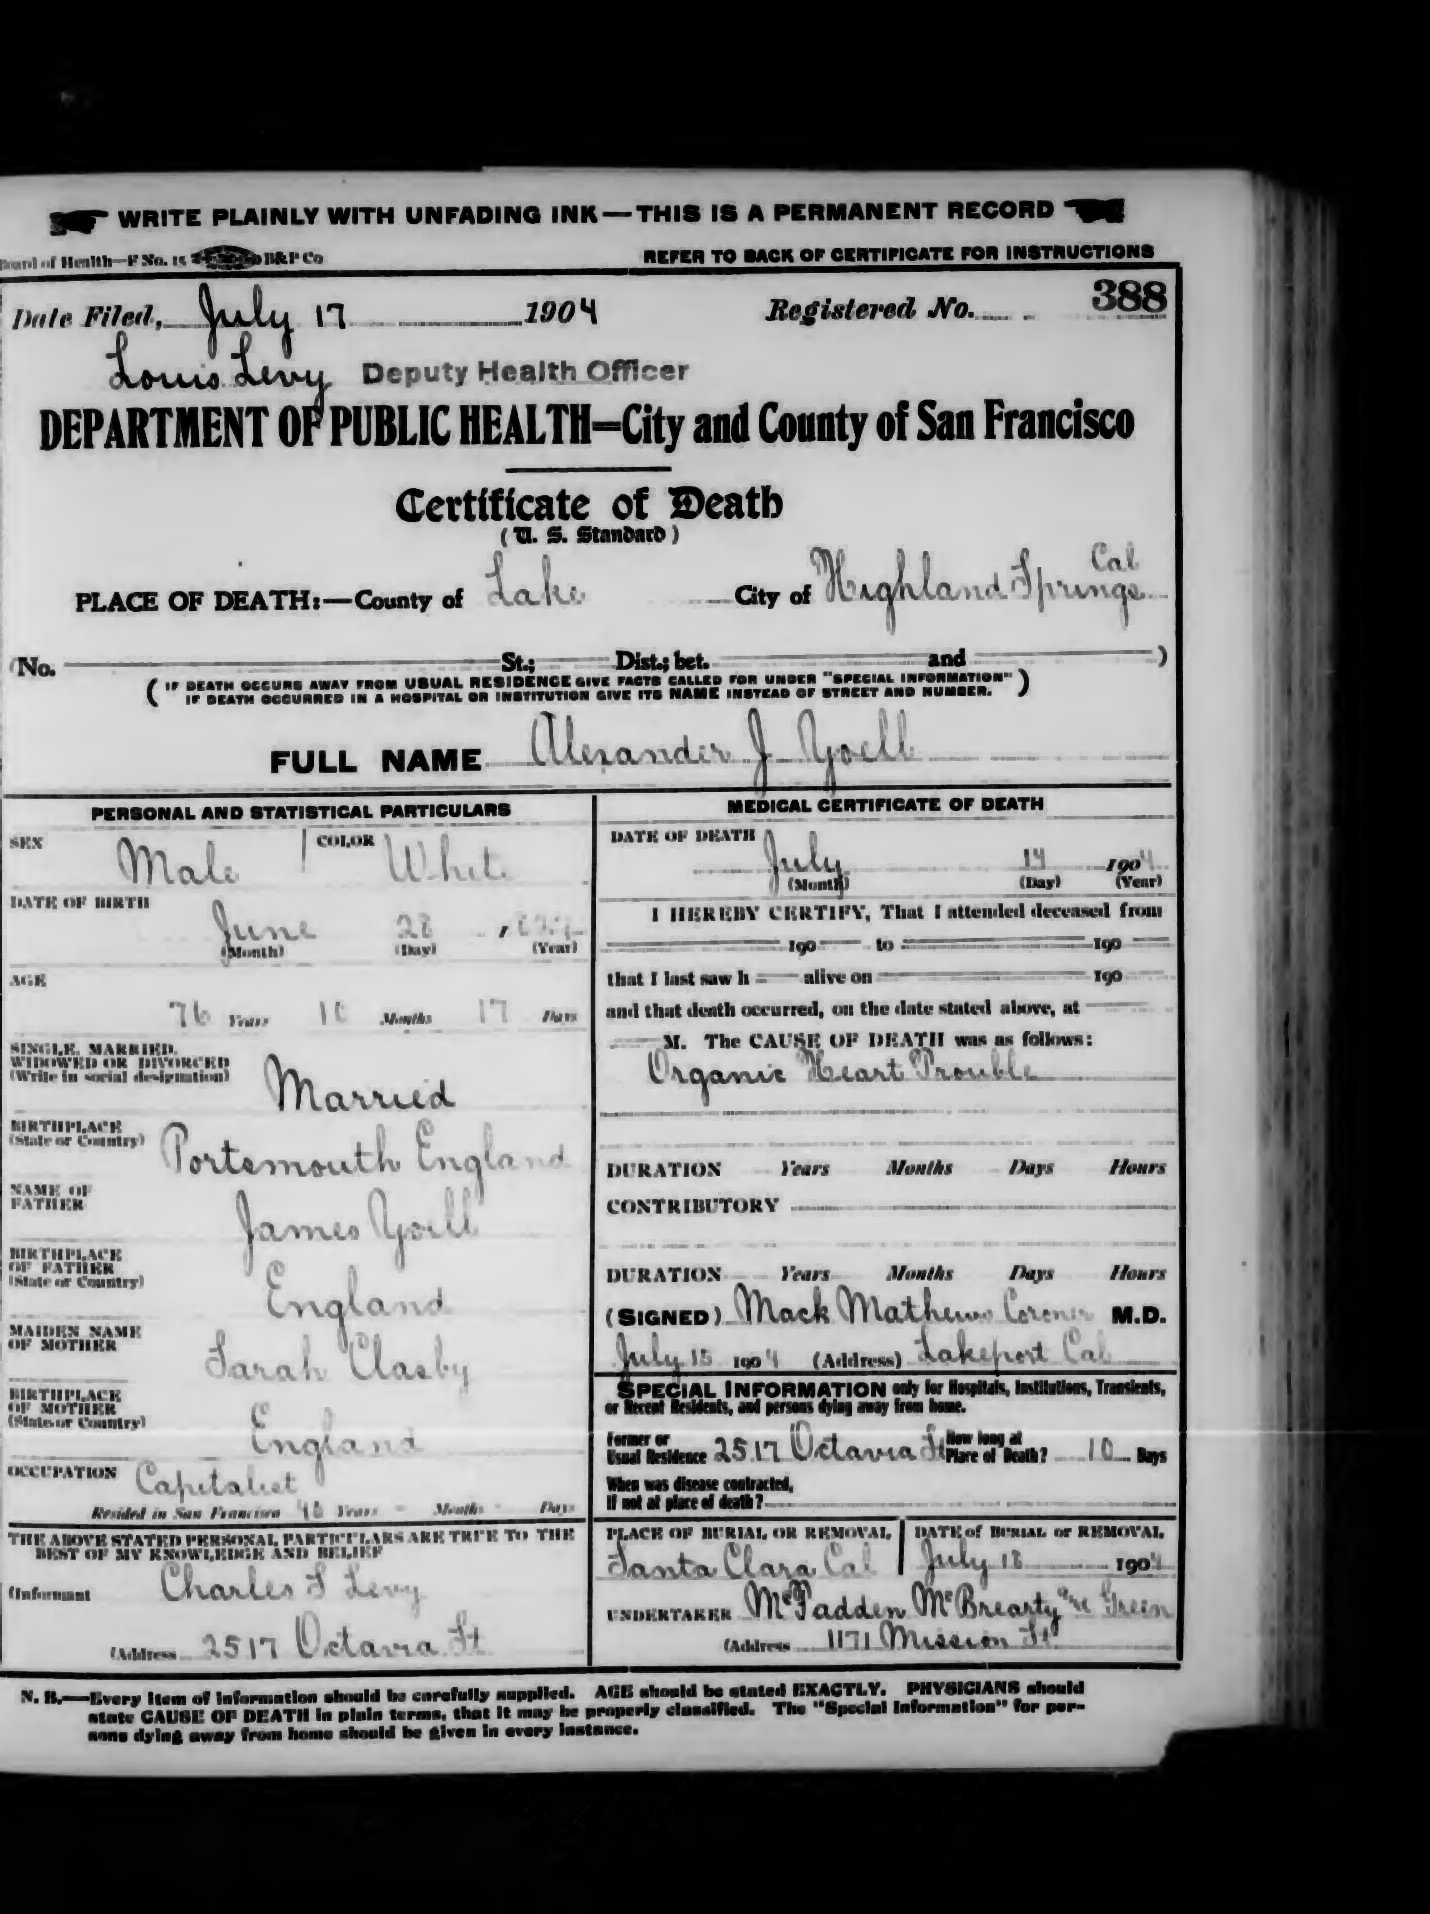 WRITE PLAINLY WITH UNFADING INK — THIS IS A PERMANENT RECORD
Board of Health—F No. 15 B&P Co REFER TO BACK OF CERTIFICATE FOR INSTRUCTIONS
Date Filed, July 17 1904 Registered No. 388
Louis Levy Deputy Health Officer
DEPARTMENT OF PUBLIC HEALTH—City and County of San Francisco
Certificate of Death
(U. S. Standard)
Cal
PLACE OF DEATH:—County of Lake City of Highland Springs
(No. St.; Dist.; bet. and )
( IF DEATH OCCURS AWAY FROM USUAL RESIDENCE GIVE FACTS CALLED FOR UNDER "SPECIAL INFORMATION" )
IF DEATH OCCURRED IN A HOSPITAL OR INSTITUTION GIVE ITS NAME INSTEAD OF STREET AND NUMBER.
FULL NAME Alexander J Yoell
PERSONAL AND STATISTICAL PARTICULARS
SEX Male COLOR White
DATE OF BIRTH
June 28
(Month) (Day) (Year)
AGE
76 Years Months 17 Days
SINGLE, MARRIED,
WIDOWED OR DIVORCED
(Write in social designation) Married
BIRTHPLACE
(State or Country) Portsmouth England
NAME OF
FATHER James Yoell
BIRTHPLACE
OF FATHER
(State or Country) England
MAIDEN NAME
OF MOTHER Sarah Clasby
BIRTHPLACE
OF MOTHER
(State or Country) England
OCCUPATION Capitalist
Resided in San Francisco Years - Months - Days
THE ABOVE STATED PERSONAL PARTICULARS ARE TRUE TO THE
BEST OF MY KNOWLEDGE AND BELIEF
(Informant Charles S Levy
(Address 2517 Octavia St
MEDICAL CERTIFICATE OF DEATH
DATE OF DEATH
July 14 1904
(Month) (Day) (Year)
I HEREBY CERTIFY, That I attended deceased from
190 to 190
that I last saw h alive on 190
and that death occurred, on the date stated above, at
M. The CAUSE OF DEATH was as follows:
Organic Heart Trouble
DURATION Years Months Days Hours
CONTRIBUTORY
DURATION Years Months Days Hours
(SIGNED) Mack Mathews Coroner M.D.
July 15 1904 (Address) Lakeport Cal
SPECIAL INFORMATION only for Hospitals, Institutions, Transients,
or Recent Residents, and persons dying away from home.
Former or
Usual Residence 2517 Octavia St How long at
Place of Death? 10 Days
When was disease contracted,
If not at place of death?
PLACE OF BURIAL OR REMOVAL DATE of BURIAL or REMOVAL
Santa Clara Cal July 18 1904
UNDERTAKER McFadden McBrearty and Green
(Address 1171 Mission St
N. B.—Every item of information should be carefully supplied. AGE should be stated EXACTLY. PHYSICIANS should
state CAUSE OF DEATH in plain terms, that it may be properly classified. The "Special Information" for per-
sons dying away from home should be given in every instance.